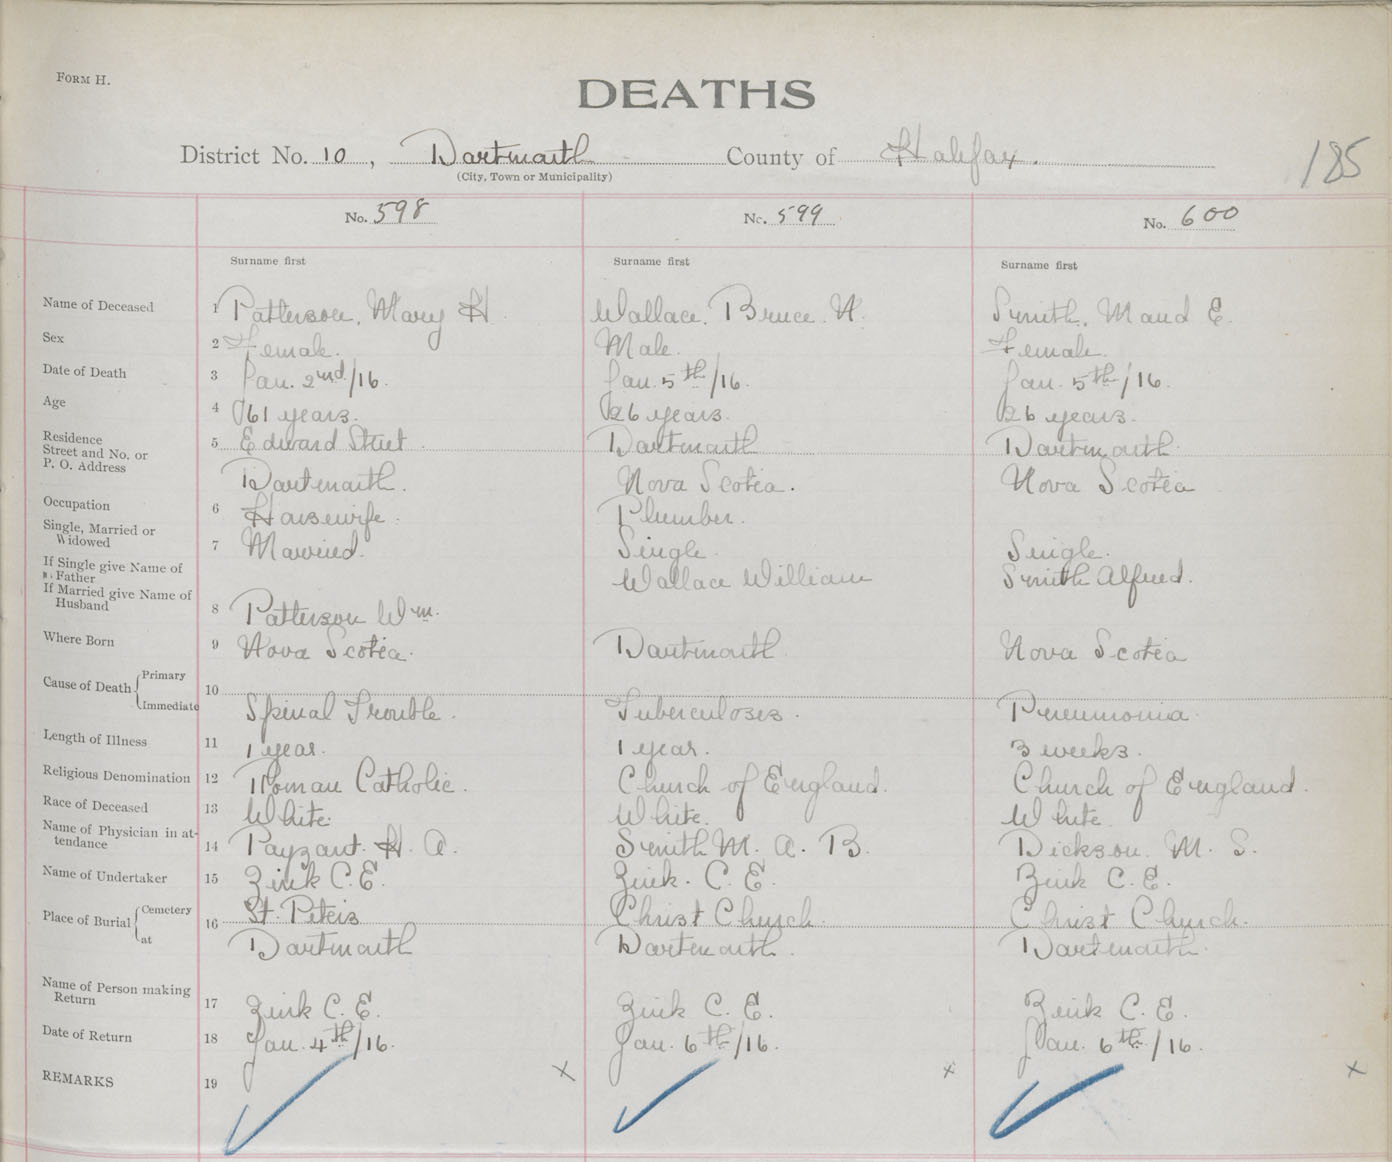 FORM H.
DEATHS
District No. 10, Dartmouth County of Halifax.
(City, Town or Municipality)
185
No. 598 No. 599 No. 600
Surname first Surname first Surname first
Name of Deceased 1 Patterson, Mary H. Wallace, Bruce N. Smith, Maud E.
Sex 2 Female. Male. Female.
Date of Death 3 Jan. 2nd/16. Jan. 5th/16. Jan. 5th/16.
Age 4 61 years. 26 years. 26 years.
Residence
Street and No. or
P. O. Address 5 Edward Street. Dartmouth Dartmouth.
Dartmouth. Nova Scotia. Nova Scotia
Occupation 6 Housewife. Plumber.
Single, Married or
Widowed 7 Married. Single. Single.
If Single give Name of
Father Wallace William Smith Alfred.
If Married give Name of
Husband 8 Patterson Wm.
Where Born 9 Nova Scotia. Dartmouth Nova Scotia
Cause of Death Primary 10
Immediate Spinal Trouble. Tuberculoses. Pneumonia.
Length of Illness 11 1 year. 1 year. 3 weeks.
Religious Denomination 12 Roman Catholic. Church of England. Church of England.
Race of Deceased 13 White. White. White.
Name of Physician in at-
tendance 14 Payzant. H. A. Smith M. A. B. Dickson. M. S.
Name of Undertaker 15 Zink C. E. Zink. C. E. Zink C. E.
Place of Burial Cemetery 16 St. Peteis Christ Church. Christ Church.
at Dartmouth Dartmouth. Dartmouth.
Name of Person making
Return 17 Zink C. E. Zink C. E. Zink C. E.
Date of Return 18 Jan. 4th/16. Jan. 6th/16. Jan. 6th/16.
REMARKS 19 x x x